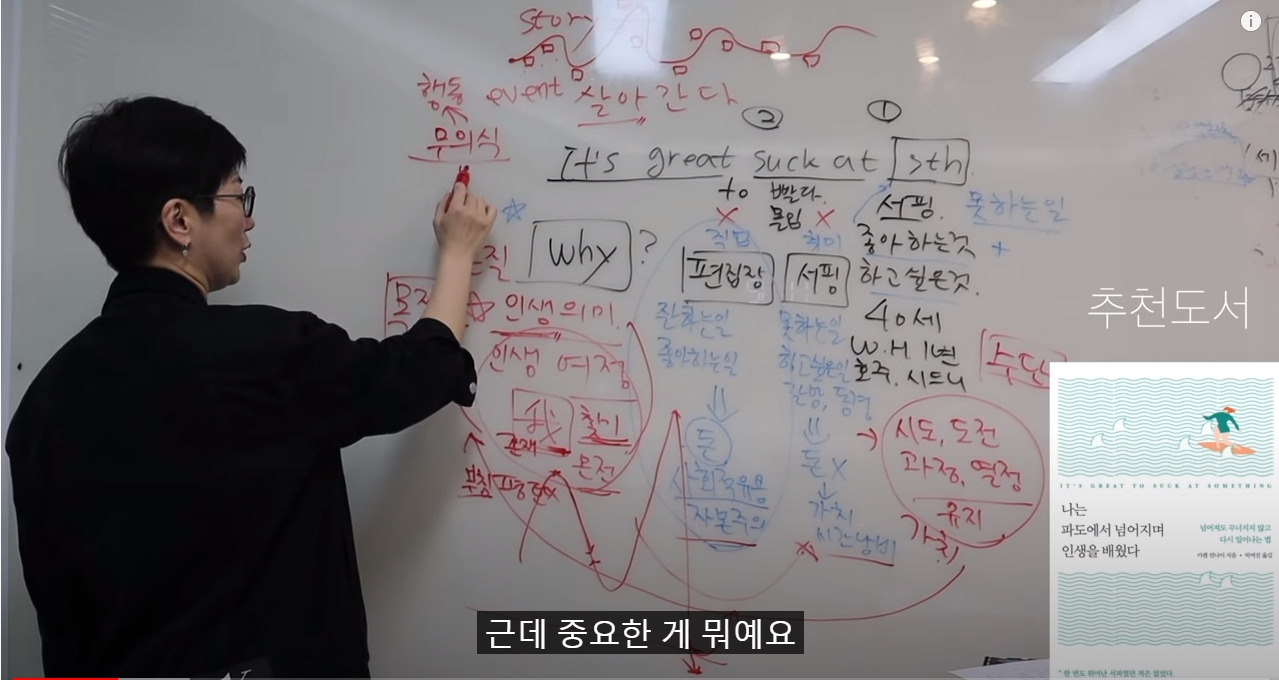 story
event 살아간다
행동
무의식
② ①
It's great suck at sth
to 빨다.
몰입
서핑. 못하는일
좋아하는것 +
하고싶은것.
40세
W.H 1번
호주. 시드니
Why ?
인생의미.
인생 여정
찾기
존재
온전
직업 취미
편집장 서핑
잘하는일 못하는일
좋아하는일 하고싶은일
갈망, 동경
돈 돈 x
사회적유용 가치
자본주의 시간낭비
수단
시도, 도전
과정, 열정
유지
가치
추천도서
IT'S GREAT TO SUCK AT SOMETHING
나는
파도에서 넘어지며
인생을 배웠다
넘어져도 무너지지 않고
다시 일어나는 법
카렌 린나이 지음 • 박여진 옮김
근데 중요한 게 뭐예요